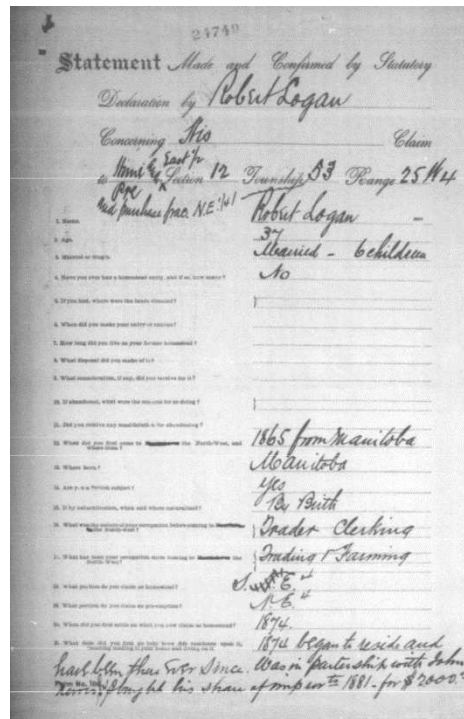 24740
Statement Made and Confirmed by Statutory
Declaration by Robert Logan
Concerning His Claim
to East ½ Section 12 Township 53 Range 25 W 4
and purchase frac. N.E. ¼
1. Name. Robert Logan
2. Age. 37
3. Married or single. Married - 6 children
4. Have you ever had a homestead entry, and if so, how many? No
5. If you had, where were the lands situated?
6. When did you make your entry or entries?
7. How long did you live on your former homestead?
8. What disposal did you make of it?
9. What consideration, if any, did you receive for it?
10. If abandoned, what were the reasons for so doing?
11. Did you receive any consideration for abandoning?
12. When did you first come to the North-West, and where from? 1865 from Manitoba
13. Where born? Manitoba
14. Are you a British subject? Yes
15. If by naturalization, when and where naturalized? By Birth
16. What was the nature of your occupation before coming to Trader Clerking
17. What has been your occupation since coming to the North-West? Trading & Farming
18. What portion do you claim as homestead? S. E. ¼
19. What portion do you claim as pre-emption? N. E. ¼
20. When did you first settle on what you now claim as homestead? 1874.
21. What date did you first actually have your residence upon it, 1874 began to reside and
have been there ever since. Was in partnership with John
bought his share of imp 1881 - for $2000.